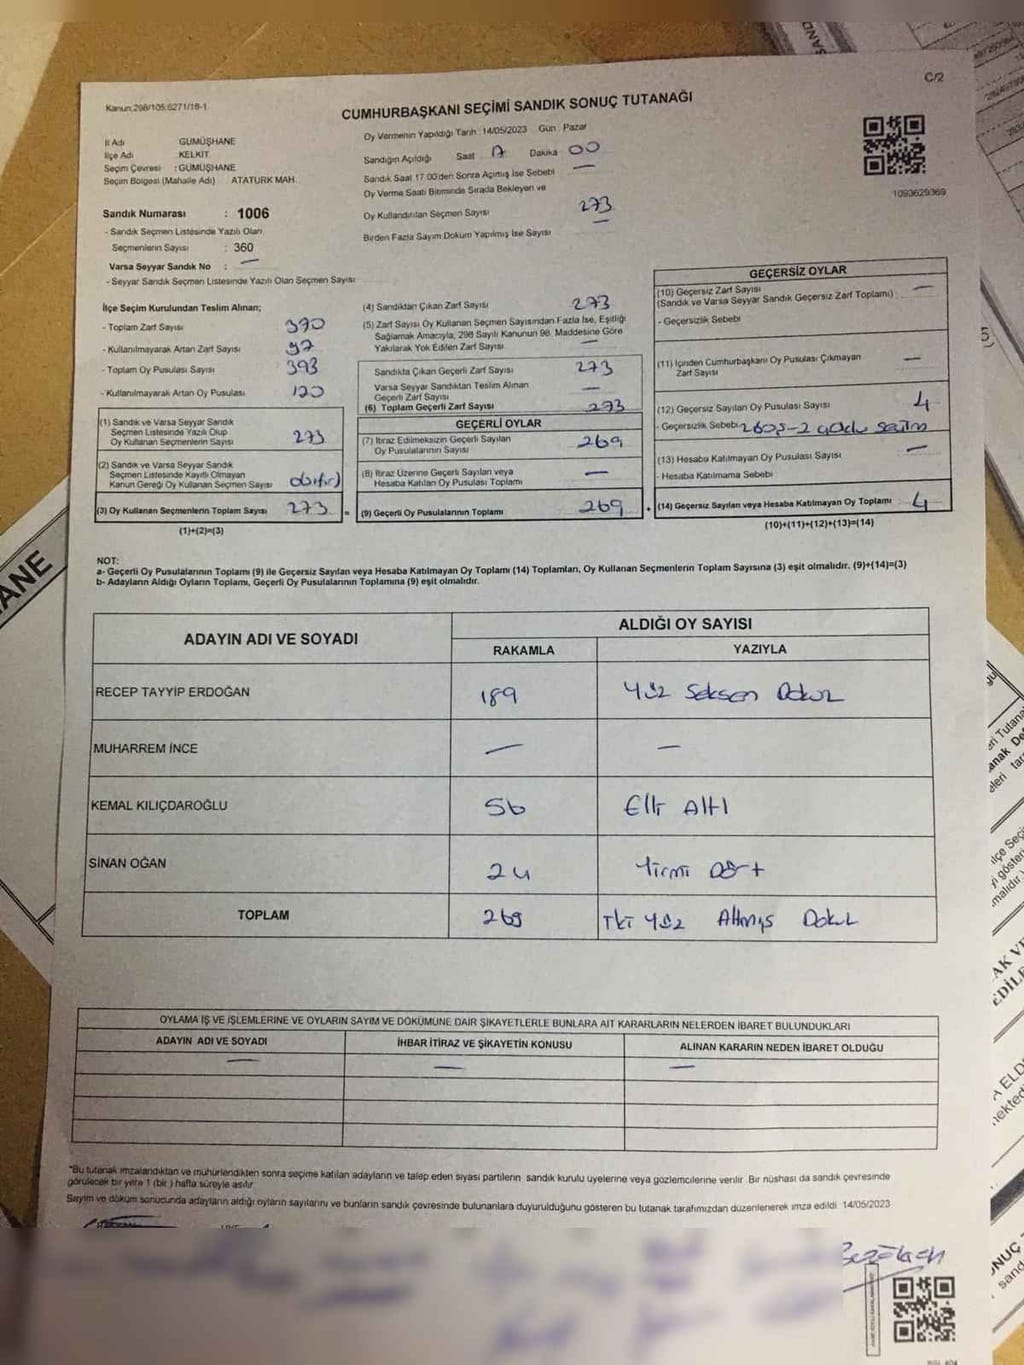 C/2
Kanun:298/105.6271/18-1
CUMHURBAŞKANI SEÇİMİ SANDIK SONUÇ TUTANAĞI
İl Adı GÜMÜŞHANE
İlçe Adı KELKİT
Seçim Çevresi : GÜMÜŞHANE
Seçim Bölgesi (Mahalle Adı) ATATÜRK MAH.
Sandık Numarası : 1006
- Sandık Seçmen Listesinde Yazılı Olan
Seçmenlerin Sayısı : 360
Varsa Seyyar Sandık No : —
- Seyyar Sandık Seçmen Listesinde Yazılı Olan Seçmen Sayısı
Oy Vermenin Yapıldığı Tarih : 14/05/2023 Gün : Pazar
Sandığın Açıldığı Saat 17 Dakika 00
Sandık Saat 17.00'den Sonra Açımış İse Sebebi —
Oy Verme Saati Bitiminde Sırada Bekleyen ve
Oy Kullandırılan Seçmen Sayısı 273
Birden Fazla Sayım Döküm Yapılmış İse Sayısı —
1093629369
İlçe Seçim Kurulundan Teslim Alınan;
- Toplam Zarf Sayısı 370
- Kullanılmayarak Artan Zarf Sayısı 97
- Toplam Oy Pusulası Sayısı 393
- Kullanılmayarak Artan Oy Pusulası 120
(1) Sandık ve Varsa Seyyar Sandık
Seçmen Listesinde Yazılı Olup
Oy Kullanan Seçmenlerin Sayısı 273
(2) Sandık ve Varsa Seyyar Sandık
Seçmen Listesinde Kayıtlı Olmayan
Kanun Gereği Oy Kullanan Seçmen Sayısı 0(sıfır)
(3) Oy Kullanan Seçmenlerin Toplam Sayısı 273 =
(1)+(2)=(3)
(4) Sandıktan Çıkan Zarf Sayısı 273
(5) Zarf Sayısı Oy Kullanan Seçmen Sayısından Fazla İse, Eşitliği
Sağlamak Amacıyla, 298 Sayılı Kanunun 98. Maddesine Göre
Yakılarak Yok Edilen Zarf Sayısı —
Sandıkta Çıkan Geçerli Zarf Sayısı 273
Varsa Seyyar Sandıktan Teslim Alınan
Geçerli Zarf Sayısı —
(6) Toplam Geçerli Zarf Sayısı 273
GEÇERLİ OYLAR
(7) İtiraz Edilmeksizin Geçerli Sayılan
Oy Pusulalarının Sayısı 269
(8) İtiraz Üzerine Geçerli Sayılan veya
Hesaba Katılan Oy Pusulası Toplamı —
(9) Geçerli Oy Pusulalarının Toplamı 269 +
GEÇERSİZ OYLAR
(10) Geçersiz Zarf Sayısı
(Sandık ve Varsa Seyyar Sandık Geçersiz Zarf Toplamı) —
- Geçersizlik Sebebi
(11) İçinden Cumhurbaşkanı Oy Pusulası Çıkmayan
Zarf Sayısı —
(12) Geçersiz Sayılan Oy Pusulası Sayısı 4
- Geçersizlik Sebebi
(13) Hesaba Katılmayan Oy Pusulası Sayısı —
- Hesaba Katılmama Sebebi
(14) Geçersiz Sayılan veya Hesaba Katılmayan Oy Toplamı 4
(10)+(11)+(12)+(13)=(14)
NOT:
a- Geçerli Oy Pusulalarının Toplamı (9) ile Geçersiz Sayılan veya Hesaba Katılmayan Oy Toplamı (14) Toplamları, Oy Kullanan Seçmenlerin Toplam Sayısına (3) eşit olmalıdır. (9)+(14)=(3)
b- Adayların Aldığı Oyların Toplamı, Geçerli Oy Pusulalarının Toplamına (9) eşit olmalıdır.
ADAYIN ADI VE SOYADI
ALDIĞI OY SAYISI
RAKAMLA YAZIYLA
RECEP TAYYİP ERDOĞAN 189 Yüz Seksen Dokuz
MUHARREM İNCE — —
KEMAL KILIÇDAROĞLU 56 Elli Altı
SİNAN OĞAN 24 Yirmi Dört
TOPLAM 269 İki Yüz Altmış Dokuz
OYLAMA İŞ VE İŞLEMLERİNE VE OYLARIN SAYIM VE DÖKÜMÜNE DAİR ŞİKAYETLERLE BUNLARA AİT KARARLARIN NELERDEN İBARET BULUNDUKLARI
ADAYIN ADI VE SOYADI İHBAR İTİRAZ VE ŞİKAYETİN KONUSU ALINAN KARARIN NEDEN İBARET OLDUĞU
— — —
*Bu tutanak imzalandıktan ve mühürlendikten sonra seçime katılan adayların ve talep eden siyasi partilerin sandık kurulu üyelerine veya gözlemcilerine verilir. Bir nüshası da sandık çevresinde
görülecek bir yere 1 (bir) hafta süreyle asılır
Sayım ve döküm sonucunda adayların aldığı oyların sayılarını ve bunların sandık çevresinde bulunanlara duyurulduğunu gösteren bu tutanak tarafımızdan düzenlenerek imza edildi 14/05/2023